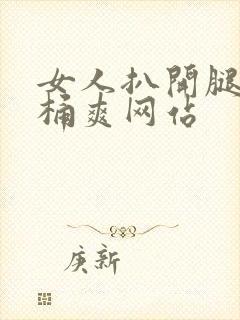 女人扒開腿
桶爽网佔
庚新